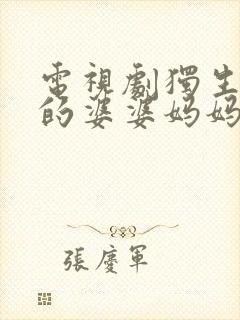 電視劇獨生
的婆婆媽媽
張慶軍